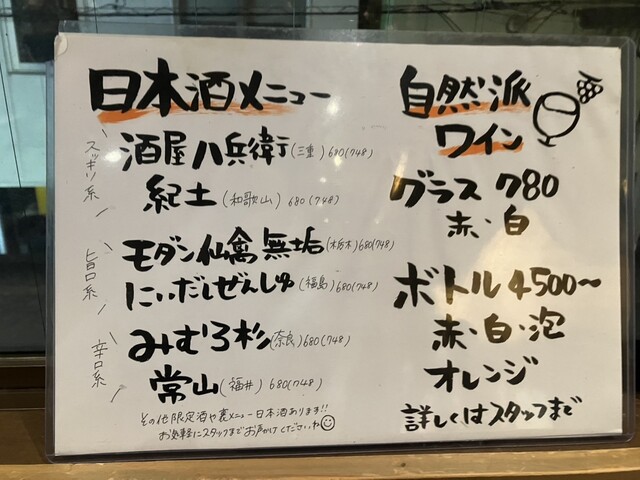 日本酒メニュー
スッキリ系
酒屋八兵衛(三重)680(748)
紀土(和歌山)680(748)
旨口系
モダン仙禽 無垢(栃木)680(748)
にいだしぜんしゅ(福島)680(748)
辛口系
みむろ杉(奈良)680(748)
常山(福井)680(748)
その他限定酒や裏メニュー日本酒あります!!
お気軽にスタッフまでお声かけくださいね
自然派
ワイン
グラス 780
赤・白
ボトル 4500〜
赤・白・泡
オレンジ
詳しくはスタッフまで